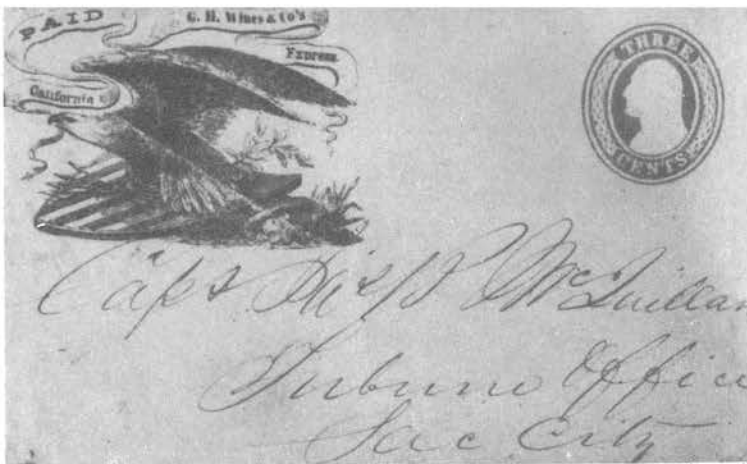 PAID
G. H. Wines & Co's
Express
California
THREE
CENTS
Capt
McQuillan
Tribune Office
Sac. City